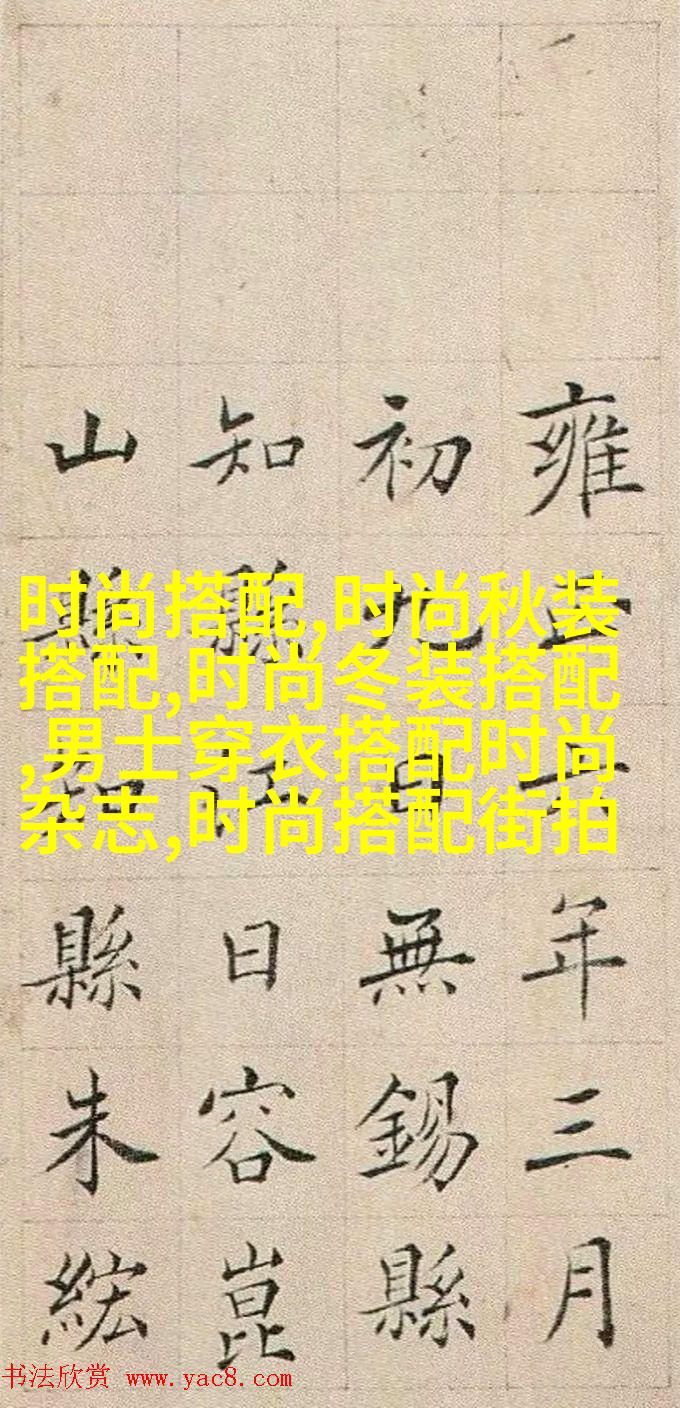 雍正十年三月
初九日無錫縣
知縣江日容崑
山縣知縣朱
时尚搭配,时尚秋装
搭配,时尚冬装搭配
,男士穿衣搭配时尚
杂志,时尚搭配街拍
书法欣赏 www.yac8.com